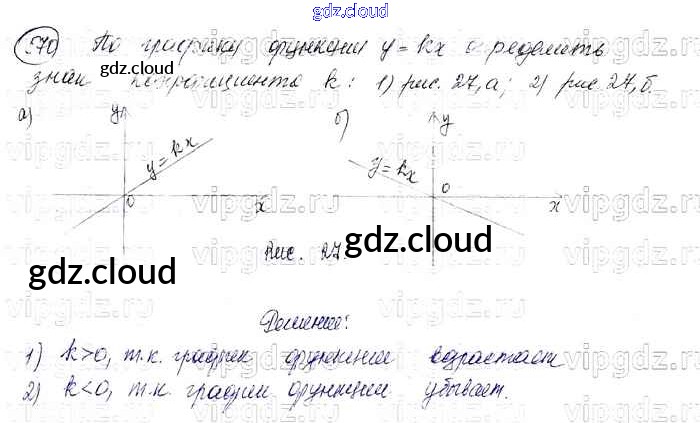 gdz.cloud
570) По графику функции y = kx определить
знак коэффициента k: 1) рис. 27, а; 2) рис. 27, б.
gdz.cloud
а) y б) y
y = kx y = kx
0 x 0 x
Рис. 27
gdz.cloud
gdz.cloud
Решение:
1) k>0, т.к. график функции возрастает
2) k<0, т.к. график функции убывает.